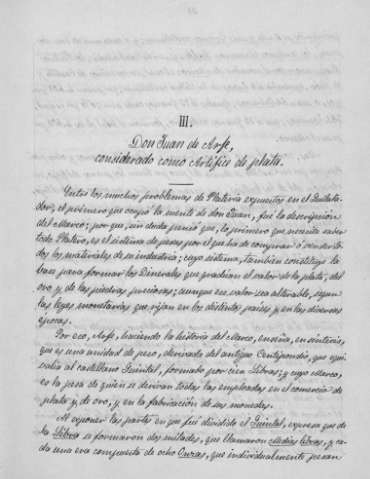 III.
Don Juan de Arfe,
considerado como Artífice de plata.
Entre los muchos problemas de Platería expuestos en el Quilata-
dor, el primero que ocupó la mente de don Juan, fué la descripción
del Marco; por que, sin duda pensó que, lo primero que necesita saber
todo Platero, es el sistema de pesas por el que ha de comprar ó vender to-
dos los materiales de su industria; cuyo sistema, también constituye la
base para formar los Dinerales que gradúan el valor de la plata, del
oro y de las piedras preciosas; aunque ese valor sea alterable, según
las leyes monetarias que rijan en los distintos países y en las diversas
épocas.
Por eso, Arfe, haciendo la historia del Marco, enseña, en síntesis,
que es una unidad de peso, derivada del antiguo Centipondio, que equi-
valía al castellano Quintal, formado por cien Libras; y cuyo Marco,
es la pesa de quien se derivan todas las empleadas en el comercio de
plata y de oro, y en la fabricación de las monedas.
Al exponer las partes en que fué dividido el Quintal, expresa que de
la Libra se formaron dos mitades, que llamaron Medias libras, y ca-
da una era compuesta de ocho Onzas, que individualmente pesan